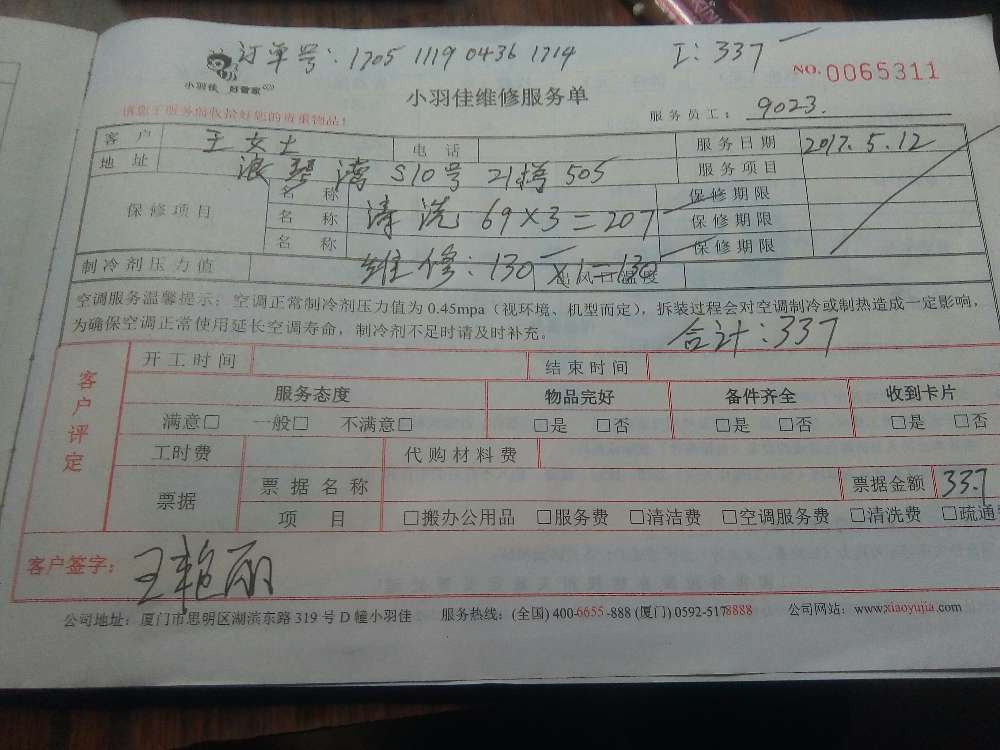 订单号:1705 1119 0436 1714 I:337
小羽佳 好管家 NO.0065311
小羽佳维修服务单
请您于服务前收拾好您的贵重物品! 服务员工:9023
客户 王女士 电话 服务日期 2017.5.12
地址 浪琴湾S10号 21楼505 服务项目
保修项目 名称 保修期限
名称 清洗 69×3=207 保修期限
名称 保修期限
制冷剂压力值 维修:130×1=130 出风口温度
空调服务温馨提示:空调正常制冷剂压力值为0.45mpa(视环境、机型而定),拆装过程会对空调制冷或制热造成一定影响,
为确保空调正常使用延长空调寿命,制冷剂不足时请及时补充。
合计:337
客户评定 开工时间 结束时间
服务态度 物品完好 备件齐全 收到卡片
满意□ 一般□ 不满意□ □是 □否 □是 □否 □是 □否
工时费 代购材料费
票据 票据名称 票据金额 337
项目 □搬办公用品 □服务费 □清洁费 □空调服务费 □清洗费 □疏通
客户签字:王艳丽
公司地址:厦门市思明区湖滨东路319号D幢小羽佳 服务热线:(全国)400-6655-888 (厦门)0592-5178888 公司网站:www.xiaoyujia.com